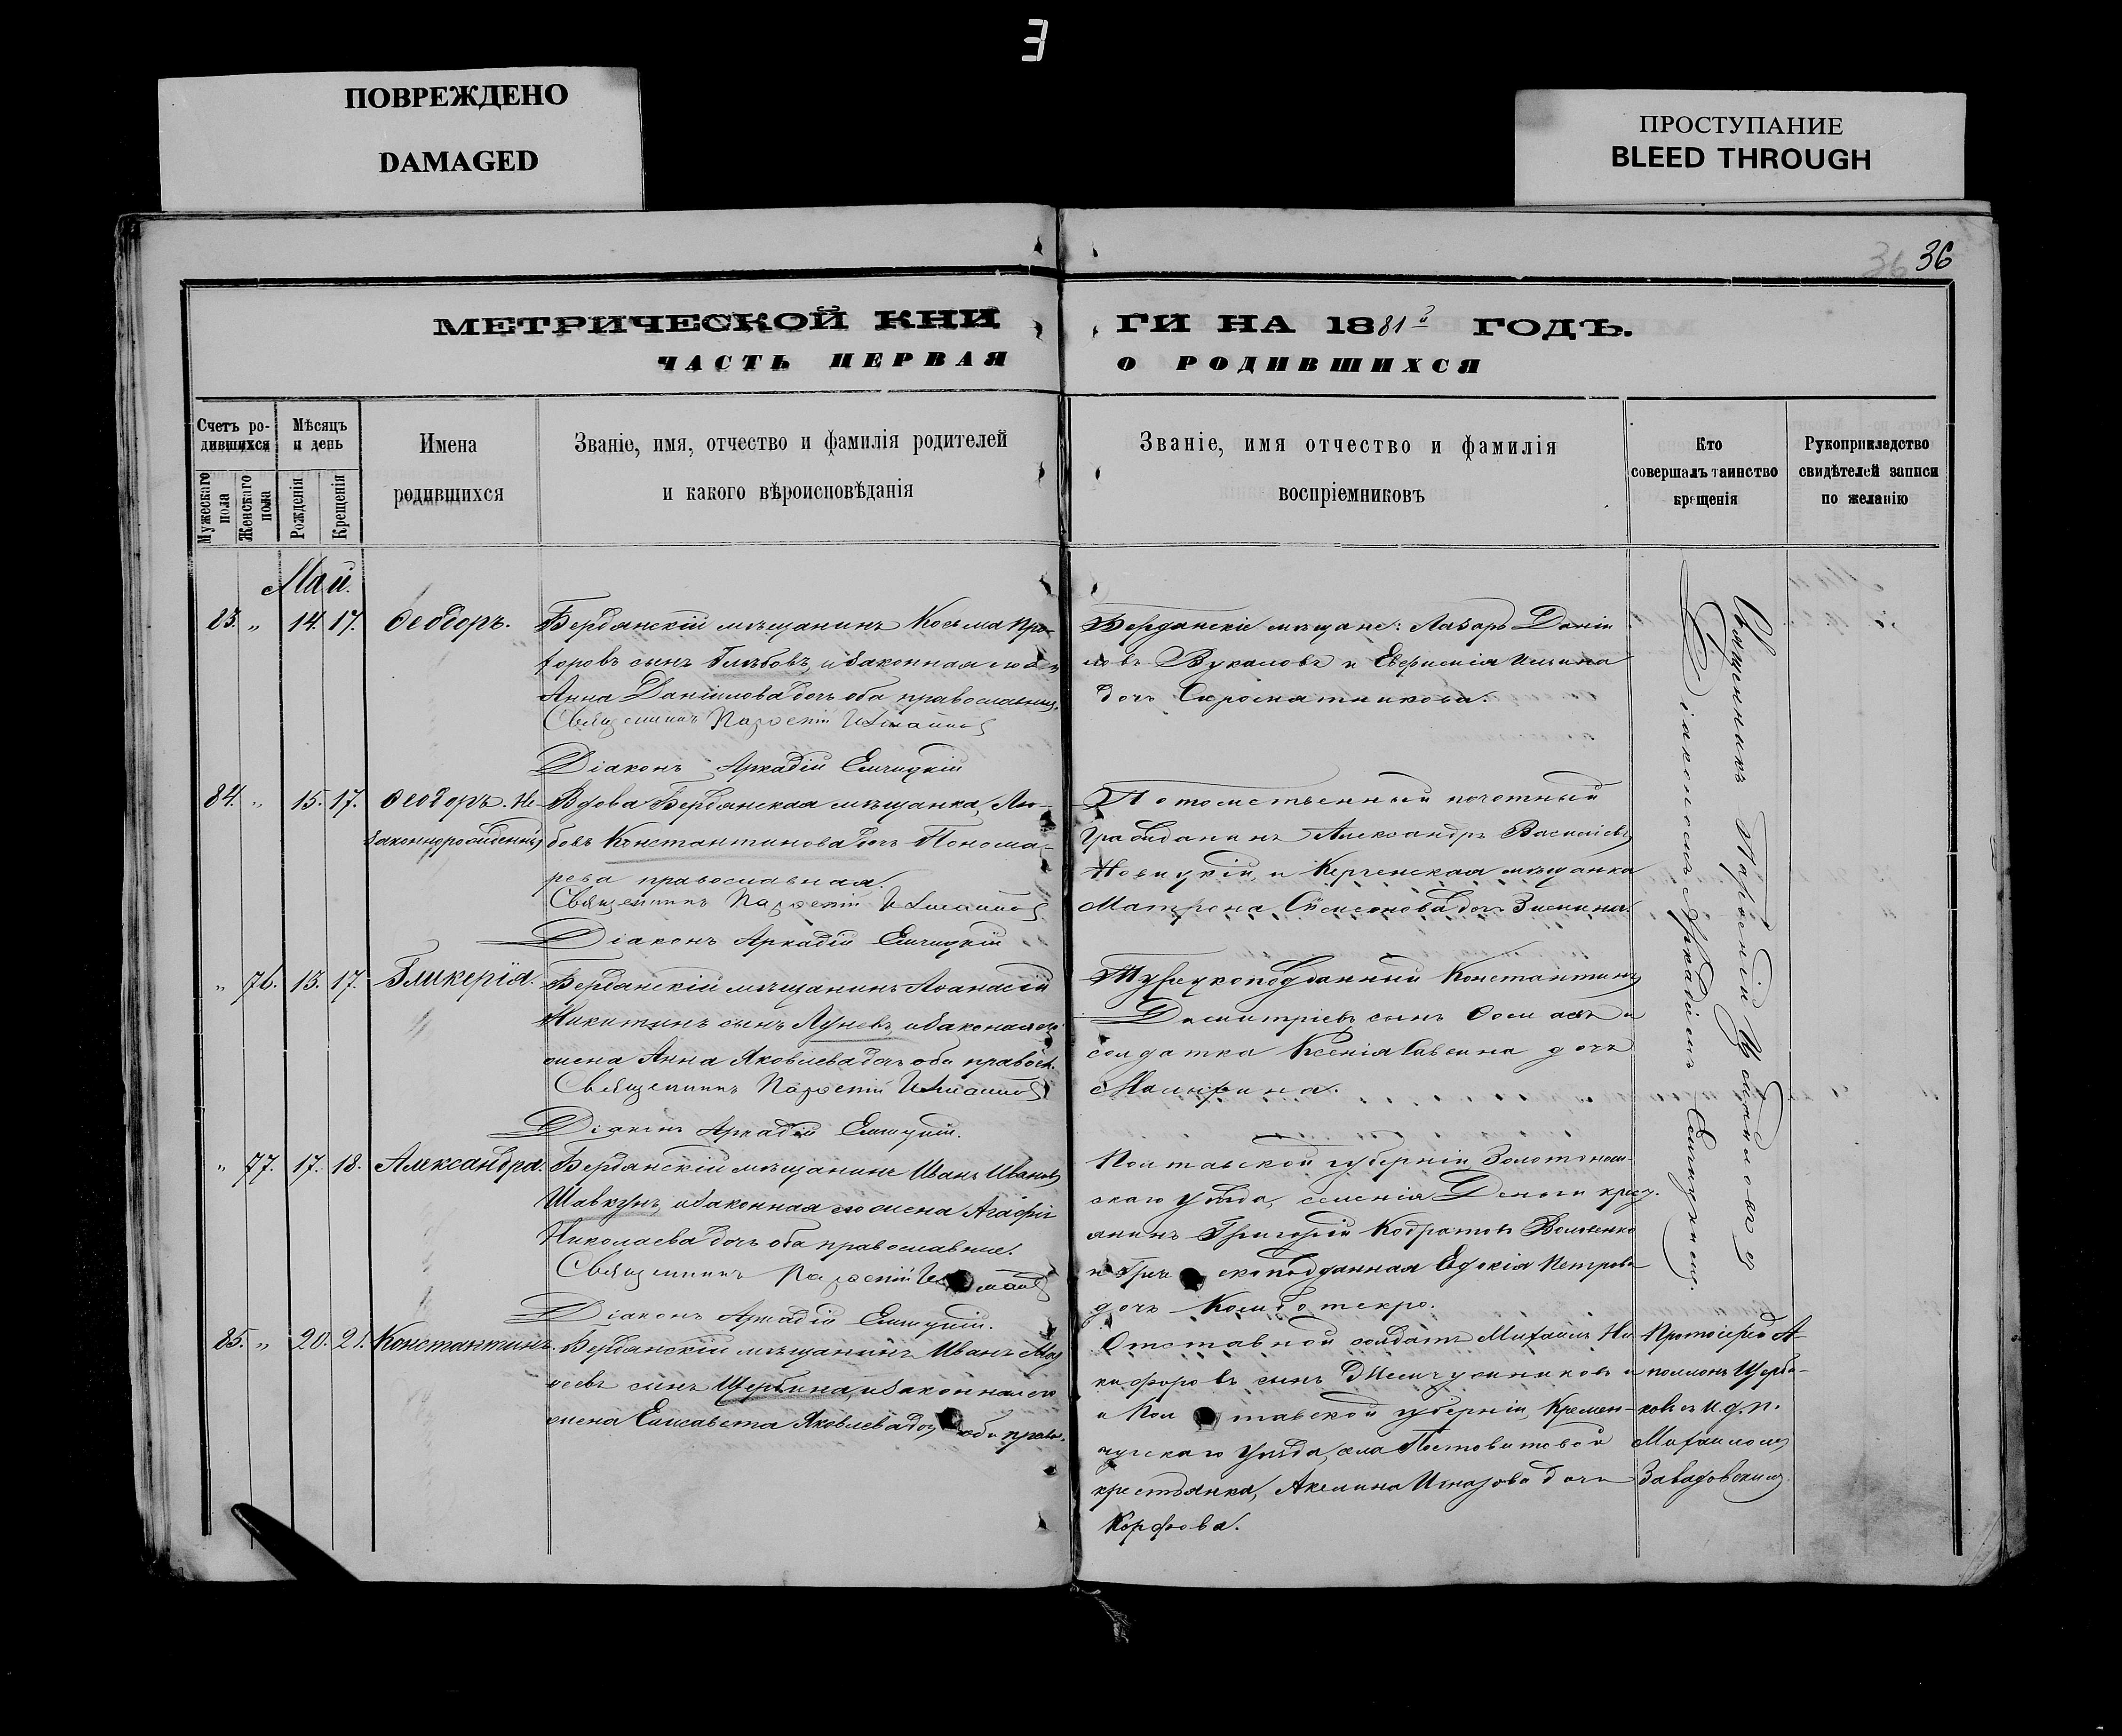 Е
ПОВРЕЖДЕНО
DAMAGED
ПРОСТУПАНИЕ
BLEED THROUGH
36 36
МЕТРИЧЕСКОЙ КНИ
ГИ НА 1881й ГОДЪ.
ЧАСТЬ ПЕРВАЯ
О РОДИВШИХСЯ
Счетъ ро-
дившихся
Мужескаго пола
Женскаго пола
Мѣсяцъ
и день
Рожденія
Крещенія
Имена
родившихся
Званіе, имя, отчество и фамилія родителей
и какого вѣроисповѣданія
Званіе, имя отчество и фамилія
воспріемниковъ
Кто
совершалъ таинство
крещенія
Рукоприкладство
свидѣтелей записи
по желанію
Май.
83. " 14. 17. Ѳеодоръ.
Бердянскій мѣщанинъ Косьма
сынъ Глѣбовъ, и законная
Анна Даніилова дочь оба православные.
Священникъ Парѳеній
Діаконъ Аркадій
Бердянскіе мѣщане: Лазарь Даніи
ловъ Вукаловъ и Евфимія Ильина
дочь Сыромятникова.
84. " 15. 17. Ѳеодоръ. Не-
законнорожденный
Вдова Бердянская мѣщанка, Лю-
бовь Константинова дочь Понома-
рева православная.
Священникъ Парѳеній
Діаконъ Аркадій
Потомственный почотный
гражданинъ Александръ Василіевъ
Новицкій и Керченская мѣщанка
Матрона Симеонова дочь Зимина.
" 76. 13. 17. Гликерія.
Бердянскій мѣщанинъ Аѳанасій
Никитинъ сынъ Луневъ, и законная его
жена Анна Яковлева дочь оба правосл.
Священникъ Парѳеній
Діаконъ Аркадій
Турецкоподданный Константинъ
Димитріевъ сынъ и
солдатка Ксенія Саввина дочь
" 77. 17. 18. Александра.
Бердянскій мѣщанинъ Иванъ Ивановъ
Шавкунъ, и законная его жена Агафія
Николаева дочь оба православные.
Священникъ Парѳеній
Діаконъ Аркадій
Полтавской губерніи Золотонош-
скаго уѣзда, селенія Деньги крест.
янинъ Григорій Кодратовъ
и Гречскоподданная Евдокія Петрова
дочь
85. " 20. 21. Константинъ.
Бердянскій мѣщанинъ Иванъ Мои
сеевъ сынъ Щербина, и законная его
жена Елисавета Яковлева дочь оба прав.
Отставной солдатъ Михаилъ Ни
кифоровъ сынъ и
и Полтавской губерніи, Кремен-
чугскаго уѣзда, села
крестьянка, Акилина дочь
Корфова.
Священникъ Парѳеній
Діакономъ Аркадіемъ
Протоіерей А-
полонъ Щерба-
ковъ съ и. д. п.
Михаиломъ
Завадовскимъ